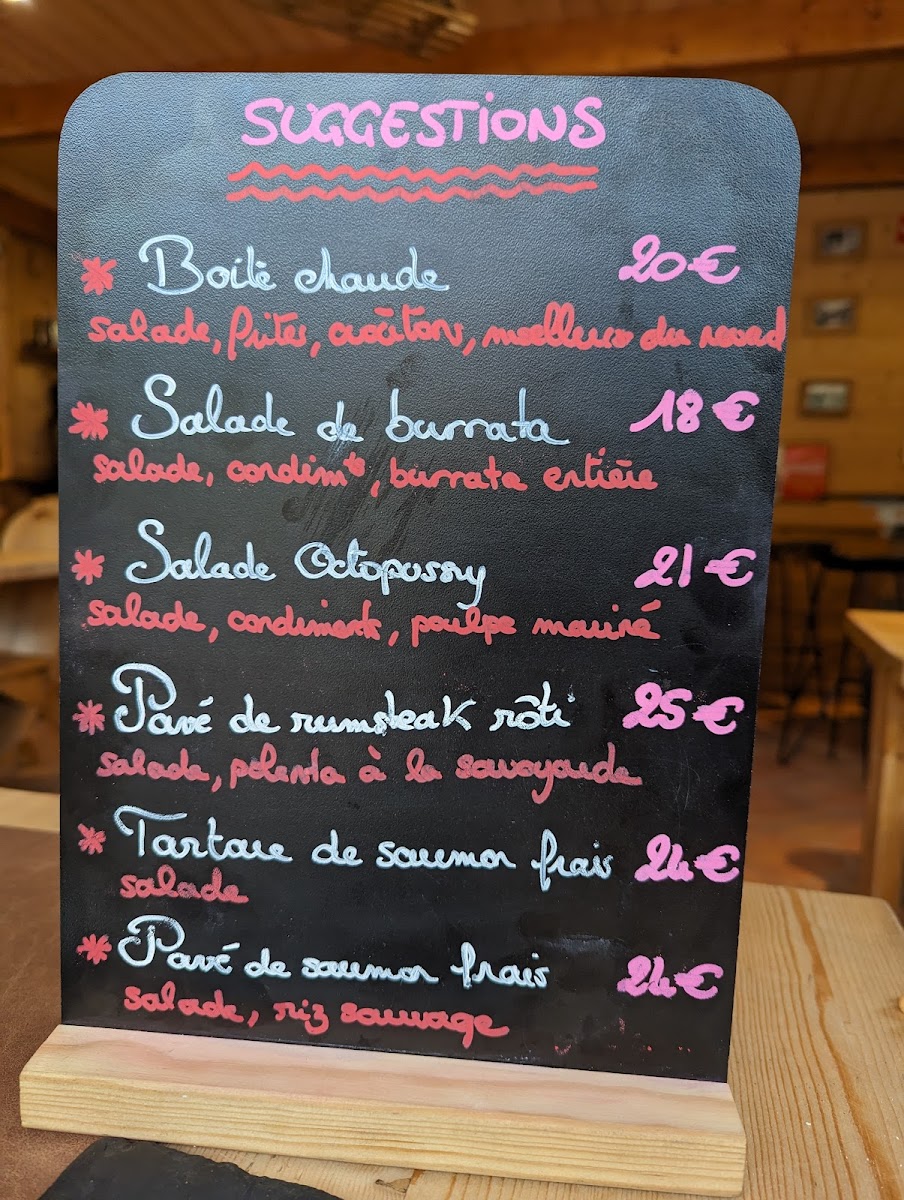 SUGGESTIONS
* Boite chaude 20 €
salade, frites, croûtons, moelleux du revard
* Salade de burrata 18 €
salade, condimts, burrata entière
* Salade Octopussy 21 €
salade, condiments, poulpe mariné
* Pavé de rumsteak rôti 25 €
salade, polenta à la savoyarde
* Tartare de saumon frais 24 €
salade
* Pavé de saumon frais 24 €
salade, riz sauvage